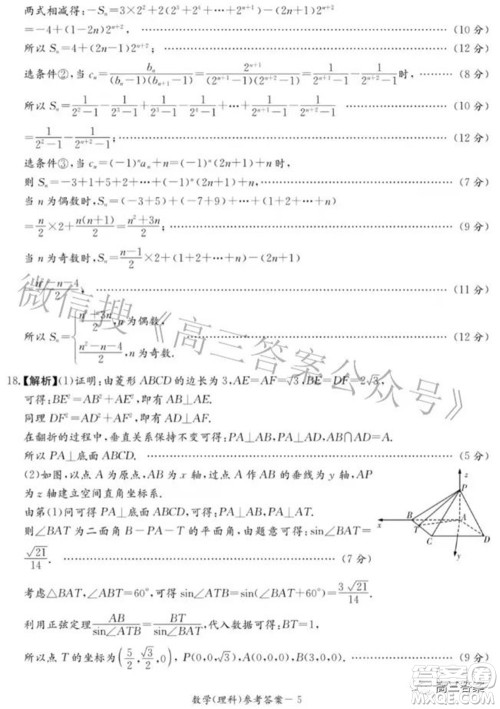 两式相减得:-Sₙ=3×2²+2(2³+2⁴+…+2ⁿ⁺¹)-(2n+1)2ⁿ⁺²
=-4+(1-2n)2ⁿ⁺², ………(10分)
所以 Sₙ=4+(2n-1)2ⁿ⁺²; ………(12分)
选条件②,当 cₙ=bₙ/((bₙ-1)(bₙ₊₁-1))=2ⁿ⁺¹/((2ⁿ⁺¹-1)(2ⁿ⁺²-1))=1/(2ⁿ⁺¹-1)-1/(2ⁿ⁺²-1)时, ………(8分)
所以 Sₙ=1/(2²-1)-1/(2³-1)+1/(2³-1)-1/(2⁴-1)+…+1/(2ⁿ⁺¹-1)-1/(2ⁿ⁺²-1) ………(10分)
=1/(2²-1)-1/(2ⁿ⁺²-1); ………(12分)
选条件③,当 cₙ=(-1)ⁿaₙ+n=(-1)ⁿ(2n+1)+n,
则 Sₙ=-3+1+5+2+…+(-1)ⁿ(2n+1)+n, ………(7分)
当 n 为偶数时,Sₙ=(-3+5)+(-7+9)+…+(1+2+…+n)
=n/2×2+n(n+1)/2=(n²+3n)/2, ………(9分)
当 n 为奇数时,Sₙ=(n-1)/2×2+(1+2+…+n)-(2n+1)
=(n²-n-4)/2, ………(11分)
所以 Sₙ={(n²+3n)/2,n为偶数,
(n²-n-4)/2,n为奇数. ………(12分)
18.【解析】(1)证明:由菱形 ABCD 的边长为 3,AE=AF=√3,BE=DF=2√3,
可得:BE²=AB²+AE²,即有 AB⊥AE.
同理 DF²=AD²+AF²,即有 AD⊥AF.
在翻折的过程中,垂直关系保持不变可得:PA⊥AB,PA⊥AD,AB∩AD=A.
所以 PA⊥底面 ABCD. ………(5分)
(2)如图,以点 A 为原点,AB 为 x 轴,过点 A 作 AB 的垂线为 y 轴,AP
为 z 轴建立空间直角坐标系.
由第(1)问可得 PA⊥底面 ABCD.
则∠BAT 为二面角 B-PA-T 的平面角,由题意可得:sin∠BAT=
√21/14. ………(7分)
考虑△BAT,∠ABT=60°,可得 sin∠ATB=sin(∠BAT+60°)=3√21/14.
利用正弦定理 AB/sin∠ATB=BT/sin∠BAT,代入数据可得:BT=1.
所以点 T 的坐标为(5/2,√3/2,0),P(0,0,√3),B(3,0,0) ………(9分)
z
P
x
B
A
T
C
D
y
微信搜《高三答案公众号》
高三答案
数学(理科)参考答案-5